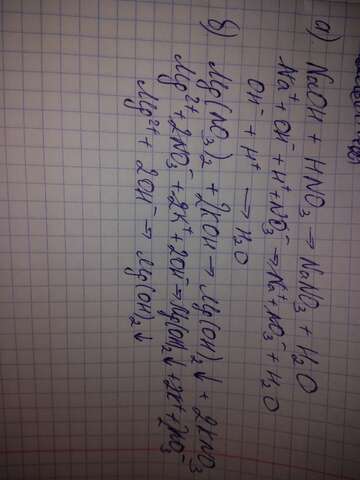 а). NaOH + HNO₃ → NaNO₃ + H₂O
Na⁺ + OH⁻ + H⁺ + NO₃⁻ → Na⁺ + NO₃⁻ + H₂O
OH⁻ + H⁺ → H₂O
б) Mg(NO₃)₂ + 2KOH → Mg(OH)₂↓ + 2KNO₃
Mg²⁺ + 2NO₃⁻ + 2K⁺ + 2OH⁻ → Mg(OH)₂↓ + 2K⁺ + 2NO₃⁻
Mg²⁺ + 2OH⁻ → Mg(OH)₂↓